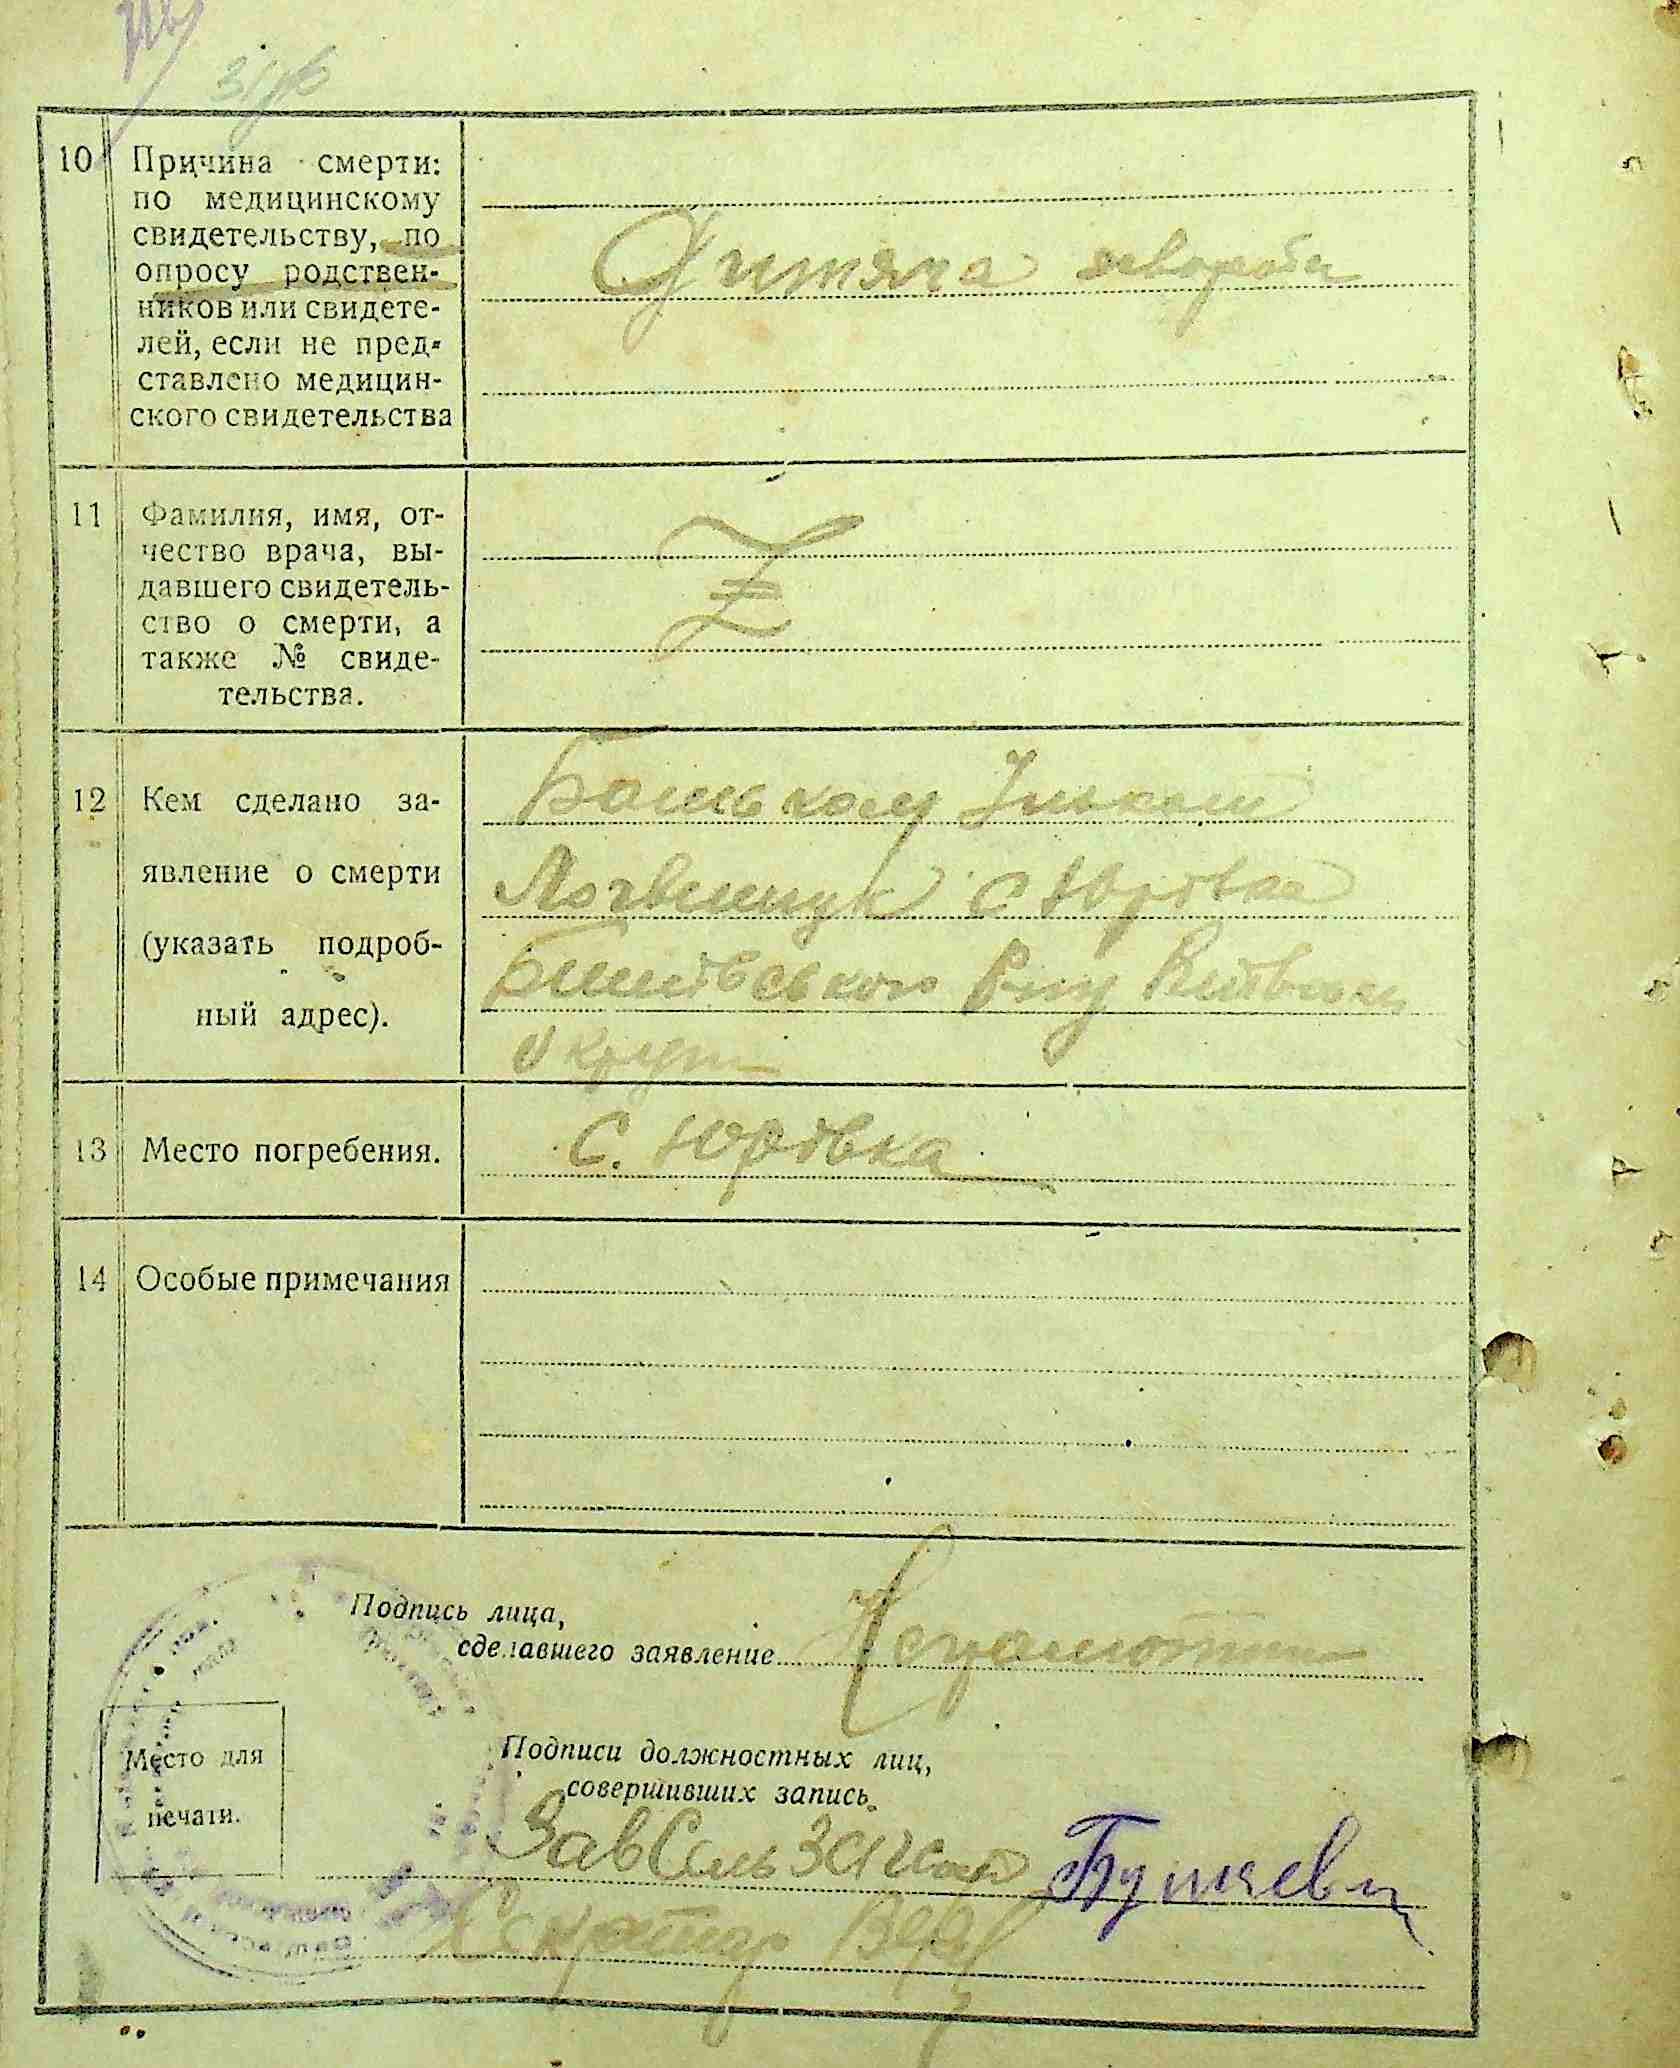 10 Причина смерти:
по медицинскому
свидетельству, по
опросу родствен-
ников или свидете-
лей, если не пред-
ставлено медицин-
ского свидетельства
Дитяча хвороба
11 Фамилия, имя, от-
чество врача, вы-
давшего свидетель-
ство о смерти, а
также № свиде-
тельства.
Z
12 Кем сделано за-
явление о смерти
(указать подроб-
ный адрес).
Батьком
Логвинчук с Юрівка
Р-ну
Округи
13 Место погребения.
С. Юрівка
14 Особые примечания
Подпись лица,
сделавшего заявление
Неграмотний
Место для
печати.
Подписи должностных лиц,
совершивших запись.
Зав Сель ЗАГС
Секретар